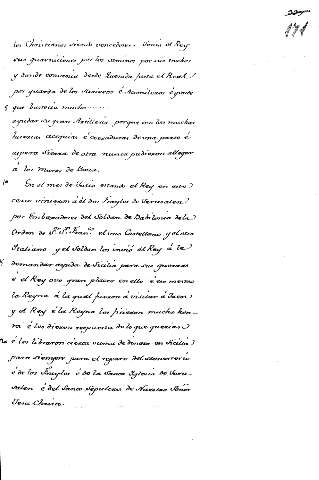 191
los Christianos siendo vencedores. Tenia el Rey
sus guarniciones por los caminos por sus trechos
y donde convenia desde Quesada fasta el Real
por guarda de los Harrieros é Azemileros é gente
5 que bastecia mucho......
ayudar su gran Artilleria porque con las muchas
huertas acequias é
aspera Sierra de otra nunca pudieron allegar
á los Muros de Baza.
10 En el mes de Julio estando el Rey en este
cerco vinieron á él dos Frayles de Jerusalen
por Embaxadores del Soldan de Babilonia de la
Orden de Sn. Franco. el uno Castellano y el otro
Italiano y el Soldan los invió al Rey á le
demandar ayuda de Sicilia para sus guerras
é el Rey ovo gran placer en ello é eso mesmo
la Reyna á la qual fueron á visitar á Jaen
y el Rey é la Reyna les ficieron mucha hon-
ra é les dieron respuesta de lo que querian
é les libraron cierta suma de deudas en Sicilia
para siempre para el reparo del Monasterio
é de los Frayles é de la Santa Iglesia de Jeru-
salen é del Santo Sepulcro de Nuestro Señor
Jesu Christo.